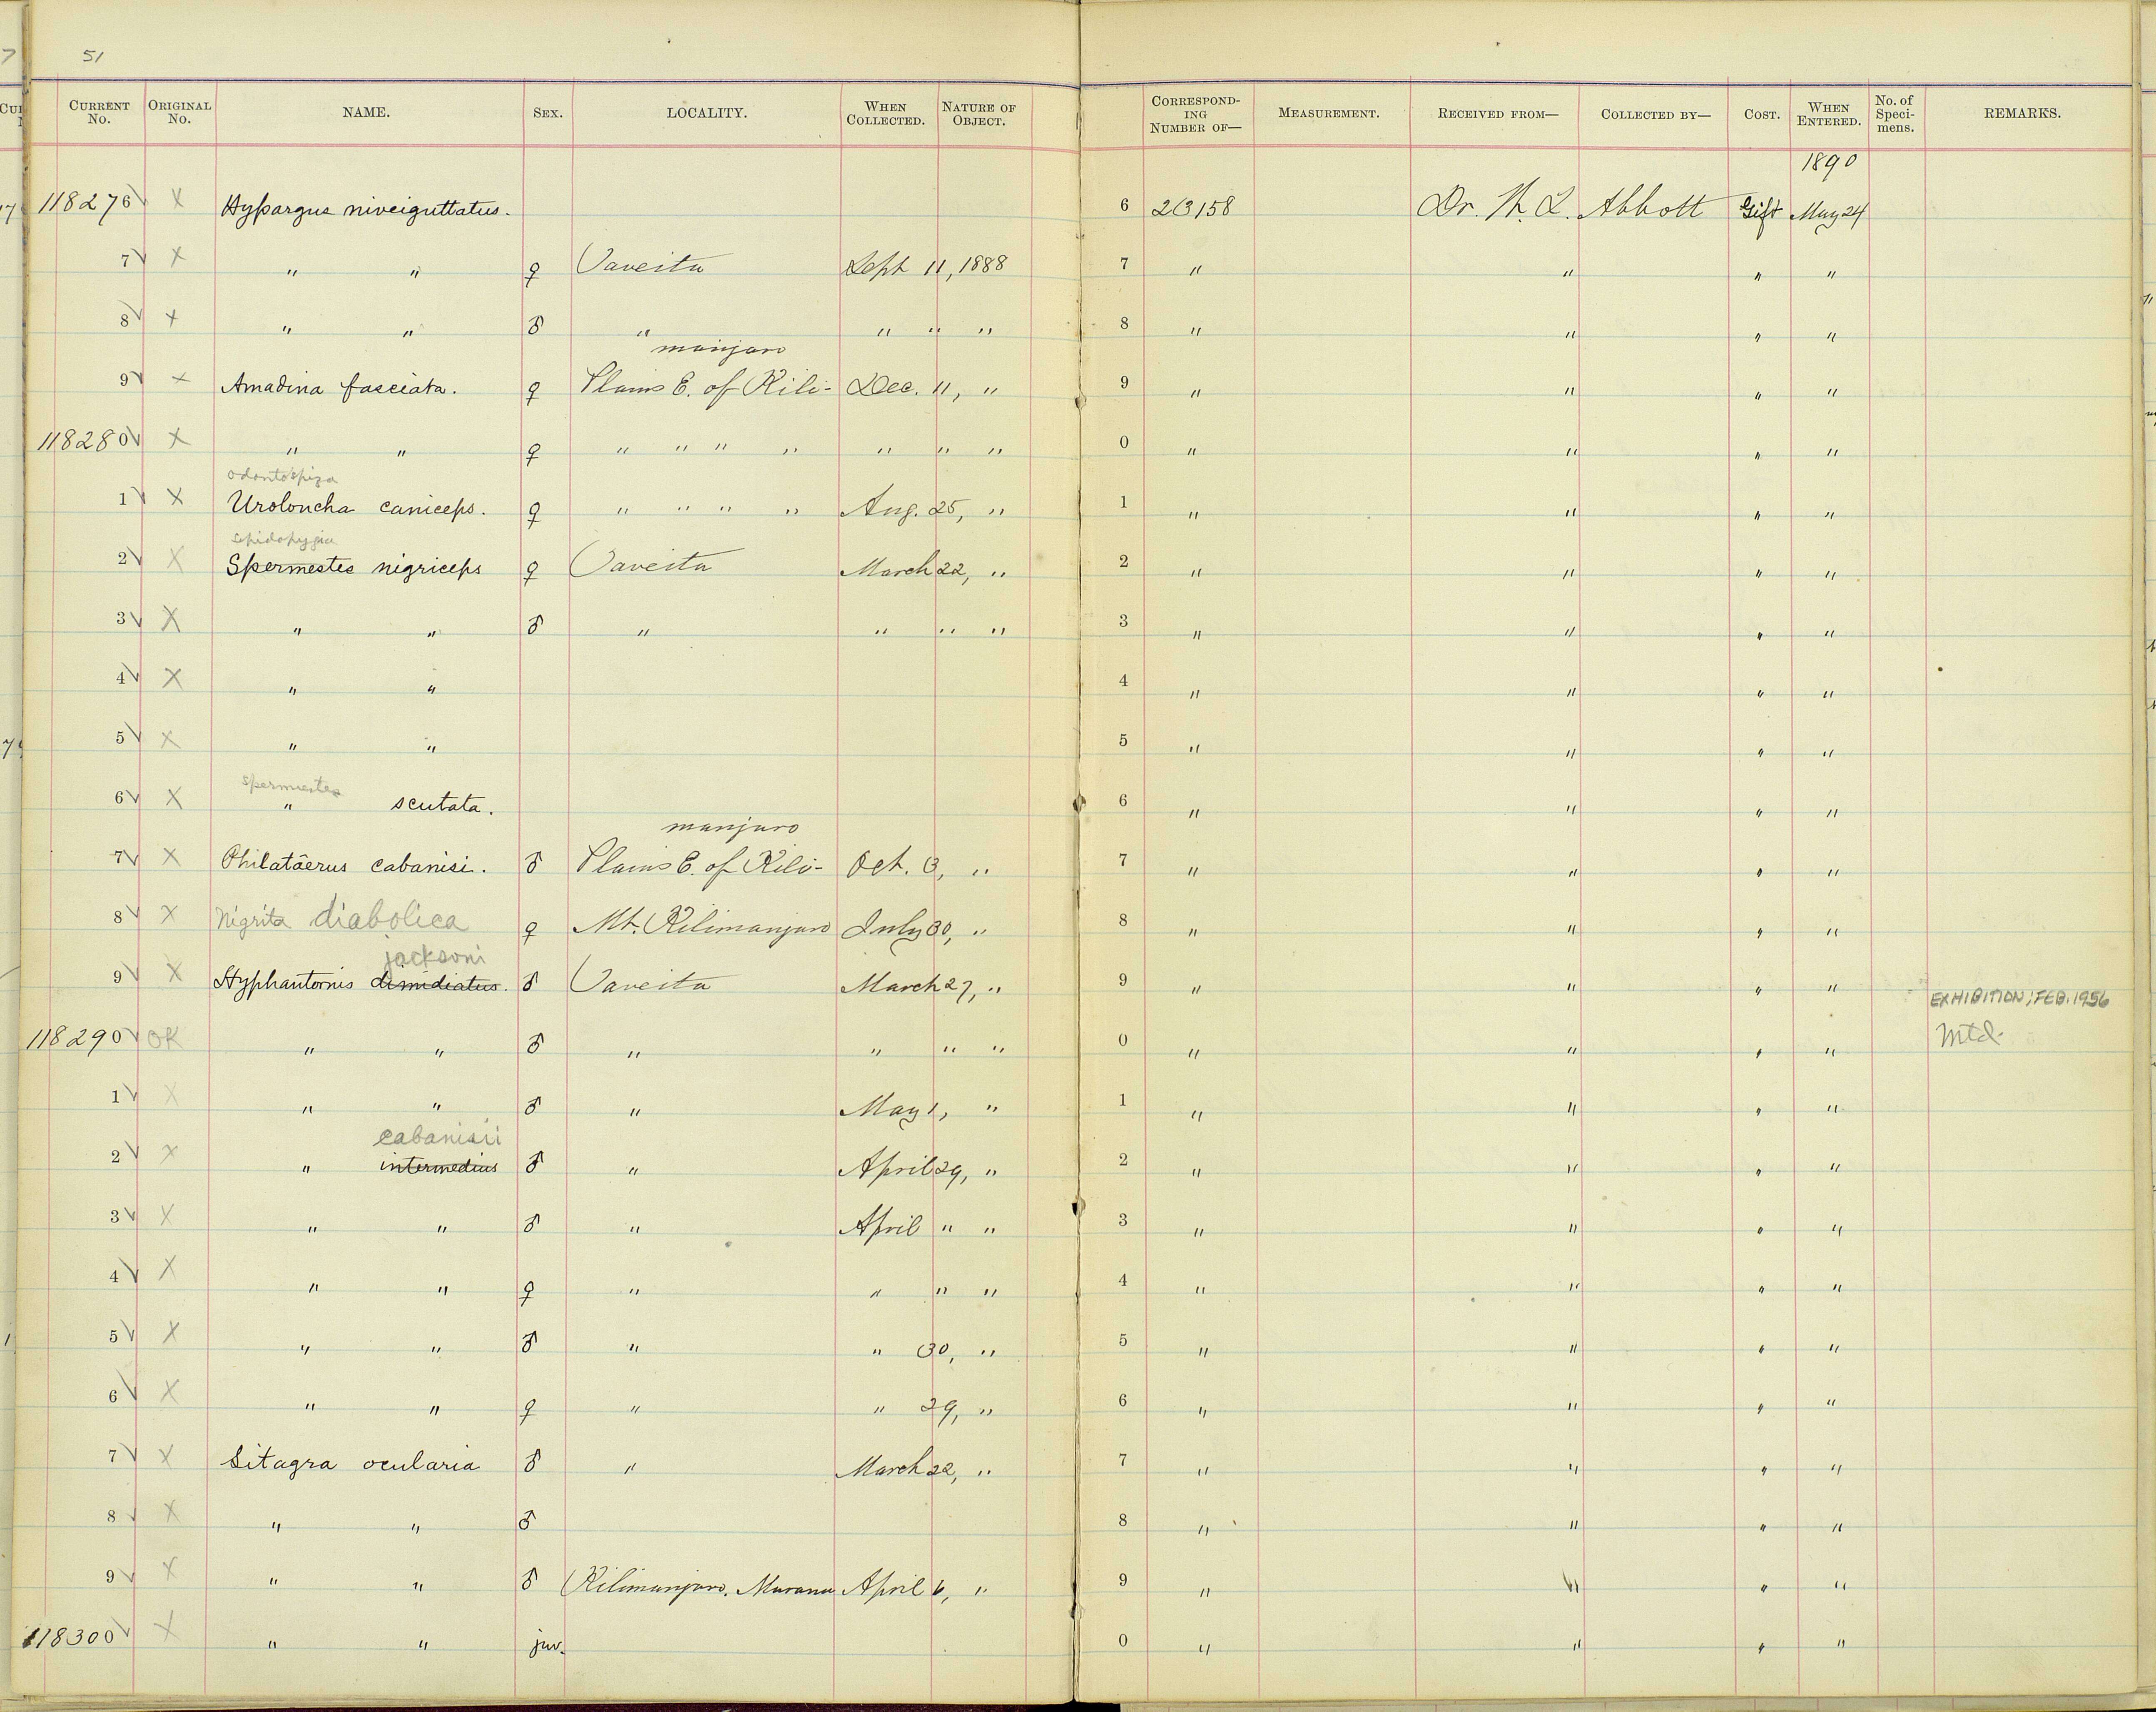 51
CURRENT No. ORIGINAL No. NAME. SEX. LOCALITY. WHEN COLLECTED. NATURE OF OBJECT. CORRESPONDING NUMBER OF— MEASUREMENT. RECEIVED FROM— COLLECTED BY— COST. WHEN ENTERED. No. of Specimens. REMARKS.
1890
118276 √ X Hypargus niveiguttatus. 6 23158 Dr. W. L. Abbott Gift May 24
7 √ X " " ♀ Taveita Sept 11, 1888 7 " " " "
8 √ X " " ♂ " " " " 8 " " " "
manjaro
9 √ X Amadina fasciata. ♀ Plains E. of Kili- Dec. 11, " 9 " " " "
118280 √ X " " ♀ " " " " " " " 0 " " " "
Odontospiza
1 √ X Uroloncha caniceps. ♀ " " " " Aug. 25, " 1 " " " "
Lepidopygia
2 √ X Spermestes nigriceps ♀ Taveita March 22, " 2 " " " "
3 √ X " " ♂ " " " " 3 " " " "
4 √ X " " 4 " " " "
5 √ X " " 5 " " " "
Spermestes
6 √ X " scutata. 6 " " " "
manjaro
7 √ X Philatäerus cabanisi. ♂ Plains E. of Kili- Oct. 3, " 7 " " " "
8 √ X Nigrita diabolica ♀ Mt. Kilimanjaro July 30, " 8 " " " "
jacksoni
9 √ X Hyphantornis dimidiatus. ♂ Taveita March 27, " 9 " " " "
EXHIBITION; FEB. 1956
118290 √ OK " " ♂ " " " " 0 " " " " Mtd.
1 √ X " " ♂ " May 1, " 1 " " " "
cabanisii
2 √ X " intermedius ♂ " April 29, " 2 " " " "
3 √ X " " ♂ " April " " 3 " " " "
4 √ X " " ♀ " " " " 4 " " " "
5 √ X " " ♂ " " 30, " 5 " " " "
6 √ X " " ♀ " " 29, " 6 " " " "
7 √ X Sitagra ocularia ♂ " March 22, " 7 " " " "
8 √ X " " ♂ 8 " " " "
9 √ X " " ♂ Kilimanjaro, Maranu April 6, " 9 " " " "
118300 √ X " " juv. 0 " " " "